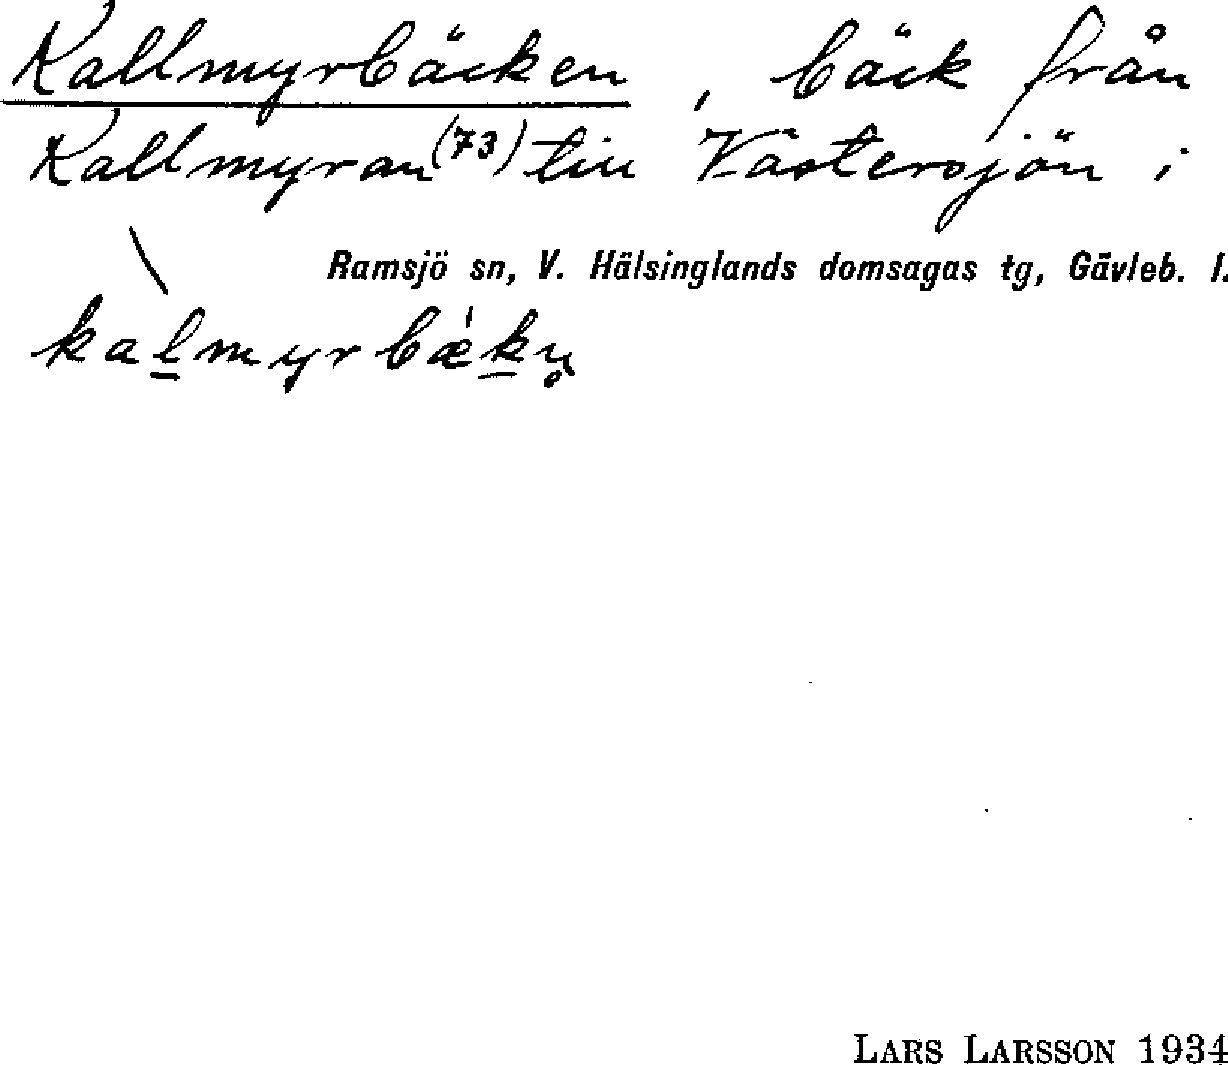 Kallmyrbäcken, bäck från
Kallmyran (73) till Västersjön i
Ramsjö sn, V. Hälsinglands domsagas tg, Gävleb. l.
\ kal̲myrbǽk̲n̥
LARS LARSSON 1934